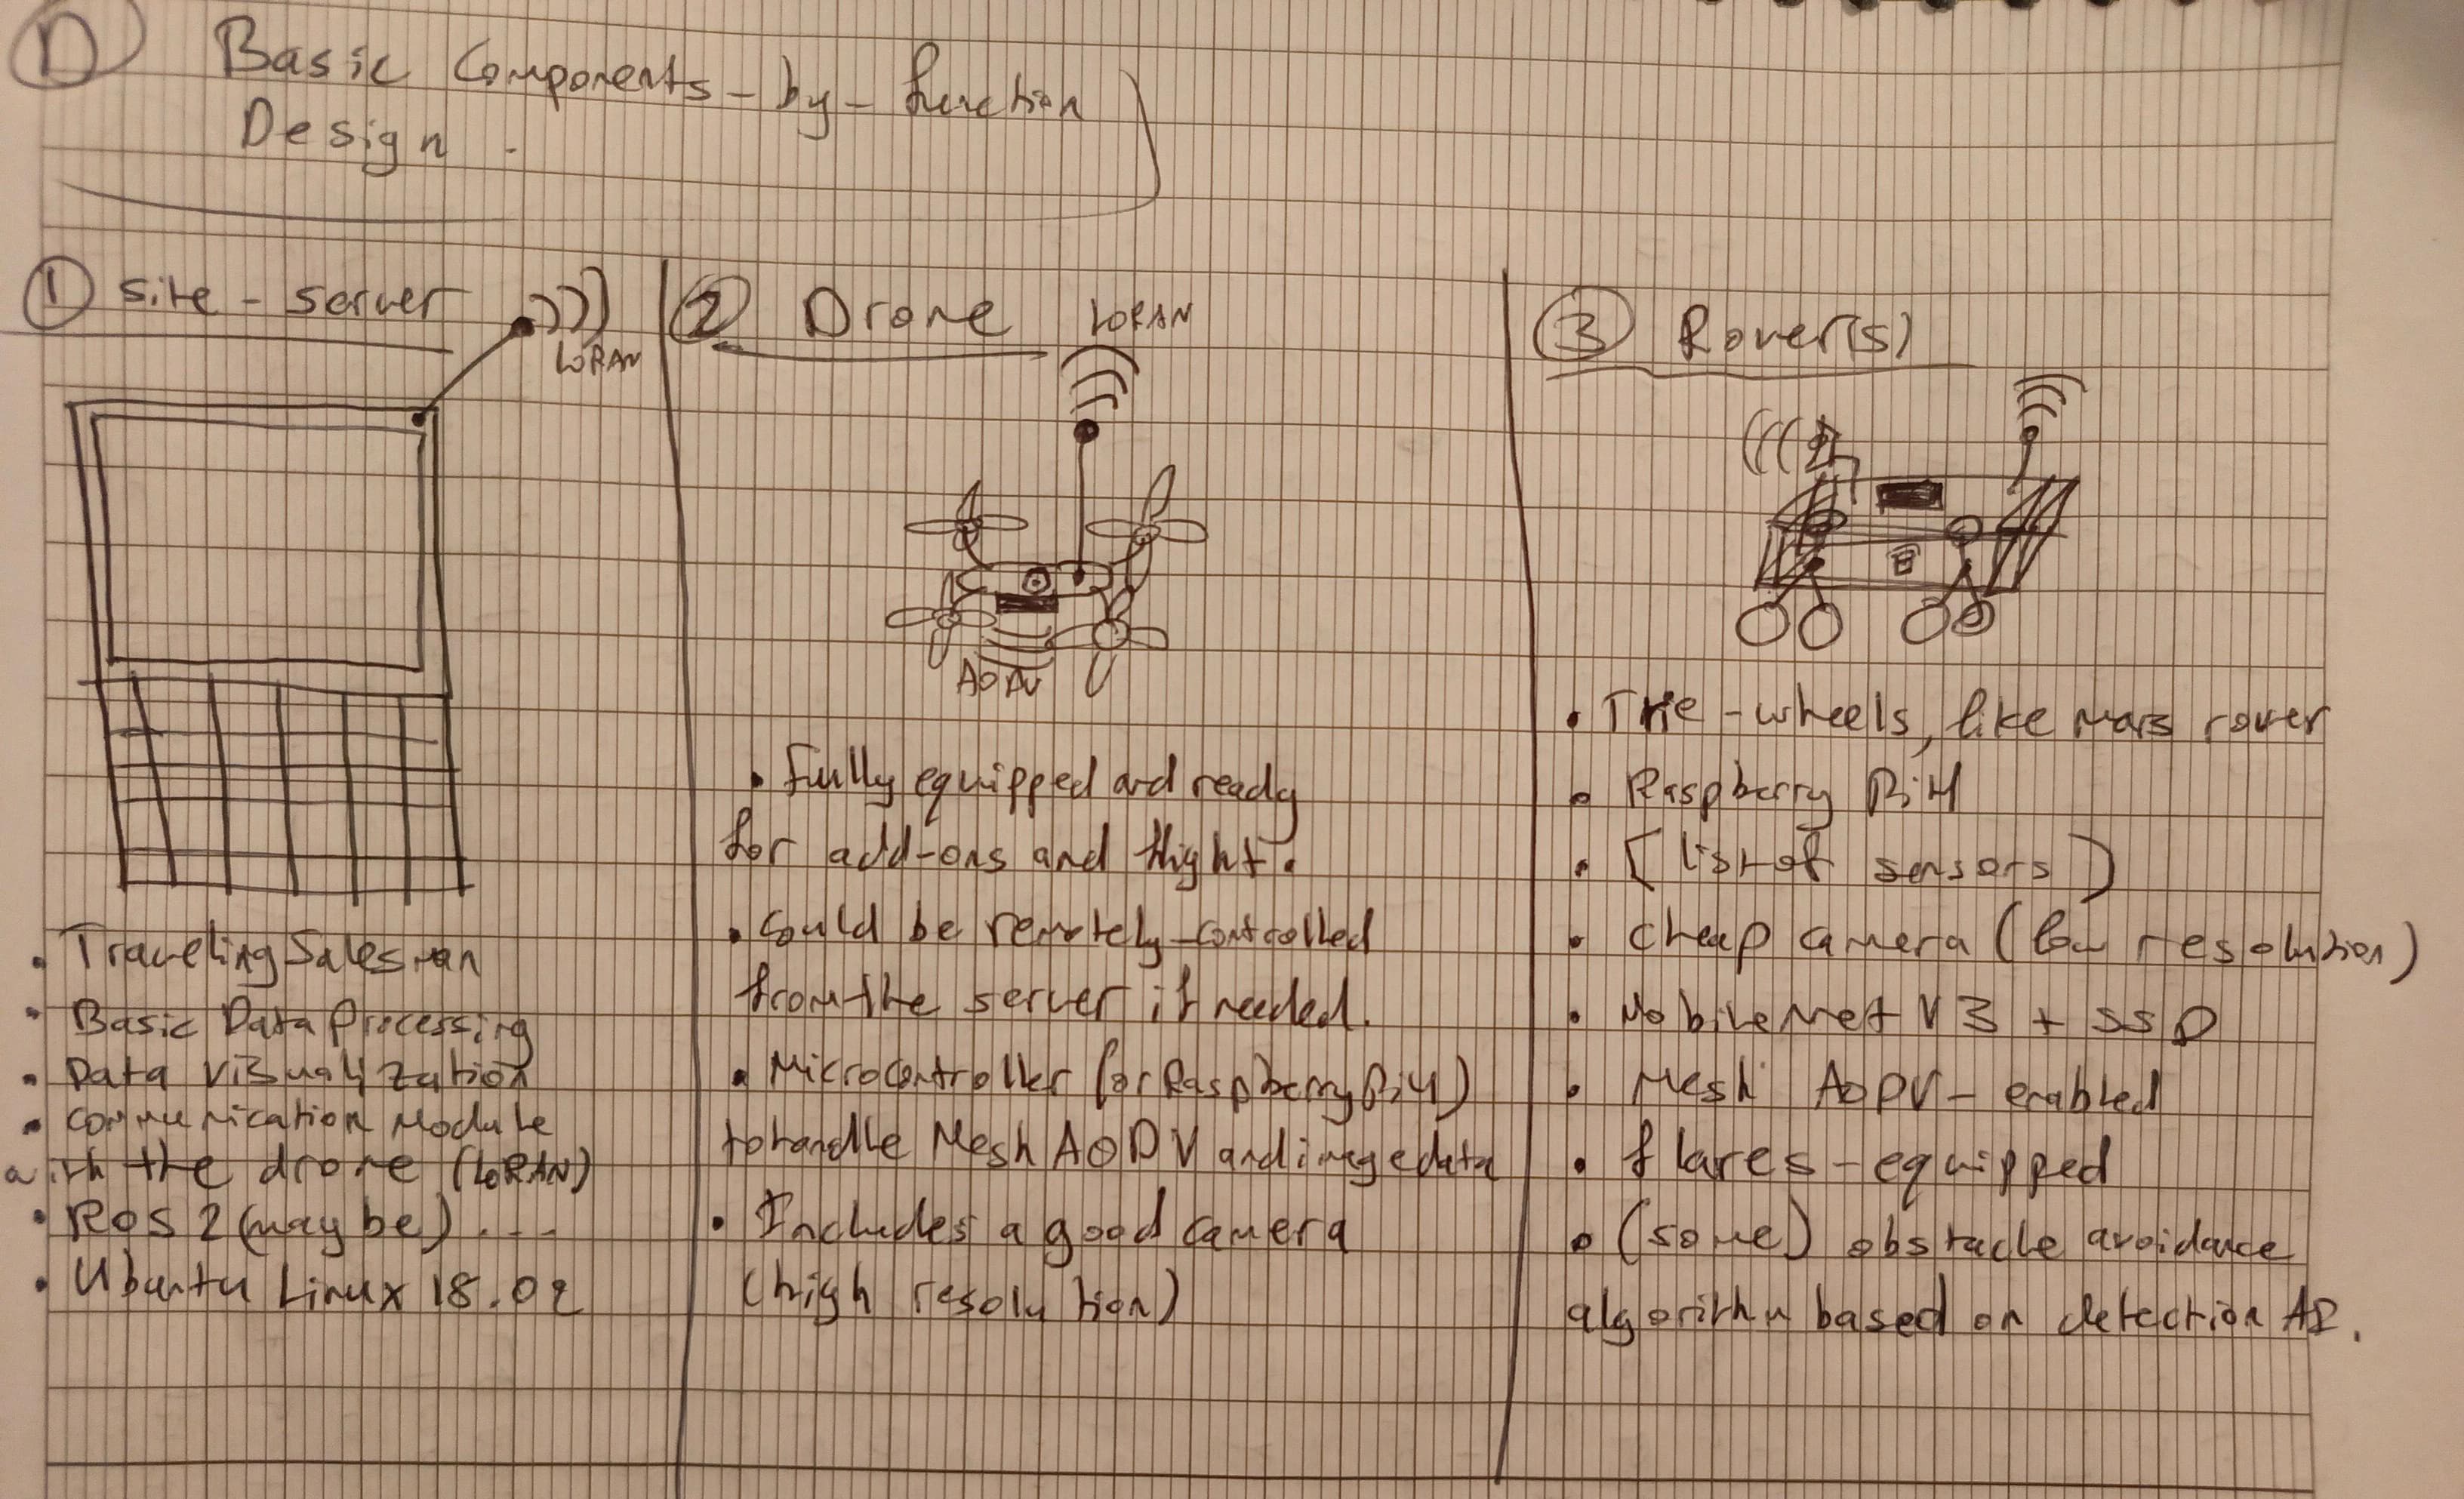 D Basic Components-by-function
Design.
① site-server
LORAN
• Traveling Salesman
• Basic Data Processing
• Data Visualization
• communication Module
with the drone (LORAN)
• ROS 2 (maybe)...
• Ubuntu Linux 18.02
② Drone
LORAN
AODV
• Fully equipped and ready
for add-ons and flight.
• could be remotely-controlled
from the server if needed.
• Microcontroller (or Raspberry Pi 4)
to handle Mesh AODV and image data
• Includes a good camera
(high resolution)
③ Rover(s)
• Trie-wheels, like mars rover
• Raspberry Pi 4
• [list of sensors]
• cheap camera (low resolution)
• MobileNet V3 + SSD
• Mesh AODV-enabled
• flares-equipped
• (some) obstacle avoidance
algorithm based on detection AI.